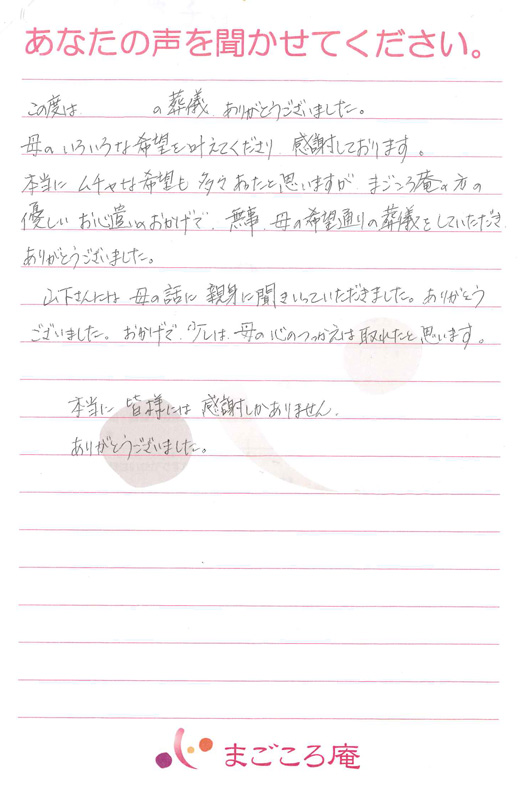 あなたの声を聞かせてください。
この度は の葬儀、ありがとうございました。
母のいろいろな希望を叶えてくださり、感謝しております。
本当に ムチャな希望も 多々あったと思いますが、まごころ庵の方の
優しい お心遣いのおかげで、無事、母の希望通りの葬儀をしていただき
ありがとうございました。
山下さんには 母の話に 親身に聞き入っていただきました。ありがとう
ございました。おかげで、少しは、母の心のつっかえは 取れたと思います。
本当に 皆様には 感謝しかありません。
ありがとうございました。
まごころ庵